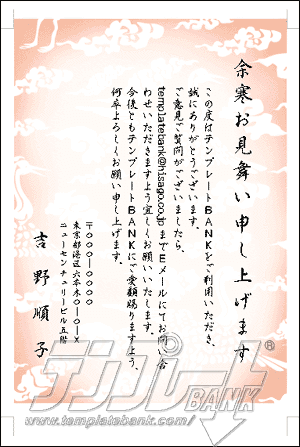 余寒お見舞い申し上げます
この度はテンプレートBANKをご利用いただき、
誠にありがとうございます。
ご意見ご質問がございましたら、
templatebank@hisago.co.jpまでEメールにてお問い合
わせいただきますよう宜しくお願いいたします。
今後ともテンプレートBANKにご愛顧賜りますよう、
何卒よろしくお願い申し上げます。
〒〇〇〇-〇〇〇〇
東京都港区六本木〇-〇-X
ニューセンチュリービル五階
吉野順子
テンプレート®
BANK
www.templatebank.com